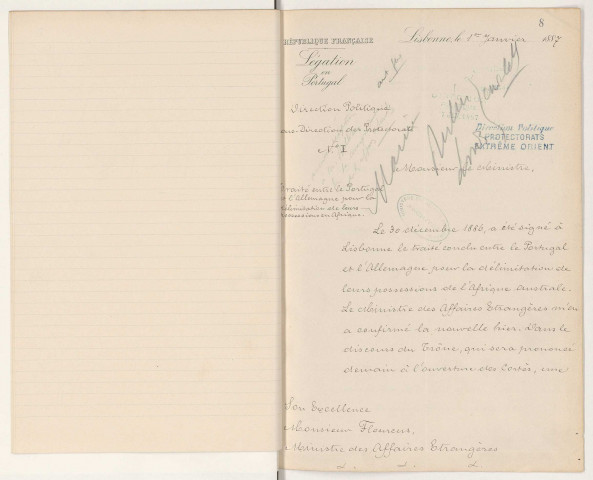 8
RÉPUBLIQUE FRANÇAISE
Lisbonne, le 1er Janvier 1887
Légation
en
Portugal
Direction Politique
Sous-Direction des Protectorats
N° 1
Direction Politique
PROTECTORATS
EXTRÊME ORIENT
Marine
Berlin
Londres
Monsieur le Ministre,
Traité entre le Portugal
et l'Allemagne pour la
délimitation de leurs
possessions en Afrique.
Le 30 décembre 1886, a été signé à
Lisbonne le traité conclu entre le Portugal
et l'Allemagne pour la délimitation de
leurs possessions de l'Afrique australe.
Le Ministre des Affaires Etrangères m'en
a confirmé la nouvelle hier. Dans le
discours du Trône, qui sera prononcé
demain à l'ouverture des Cortès, une
Son Excellence
Monsieur Flourens,
Ministre des Affaires Etrangères